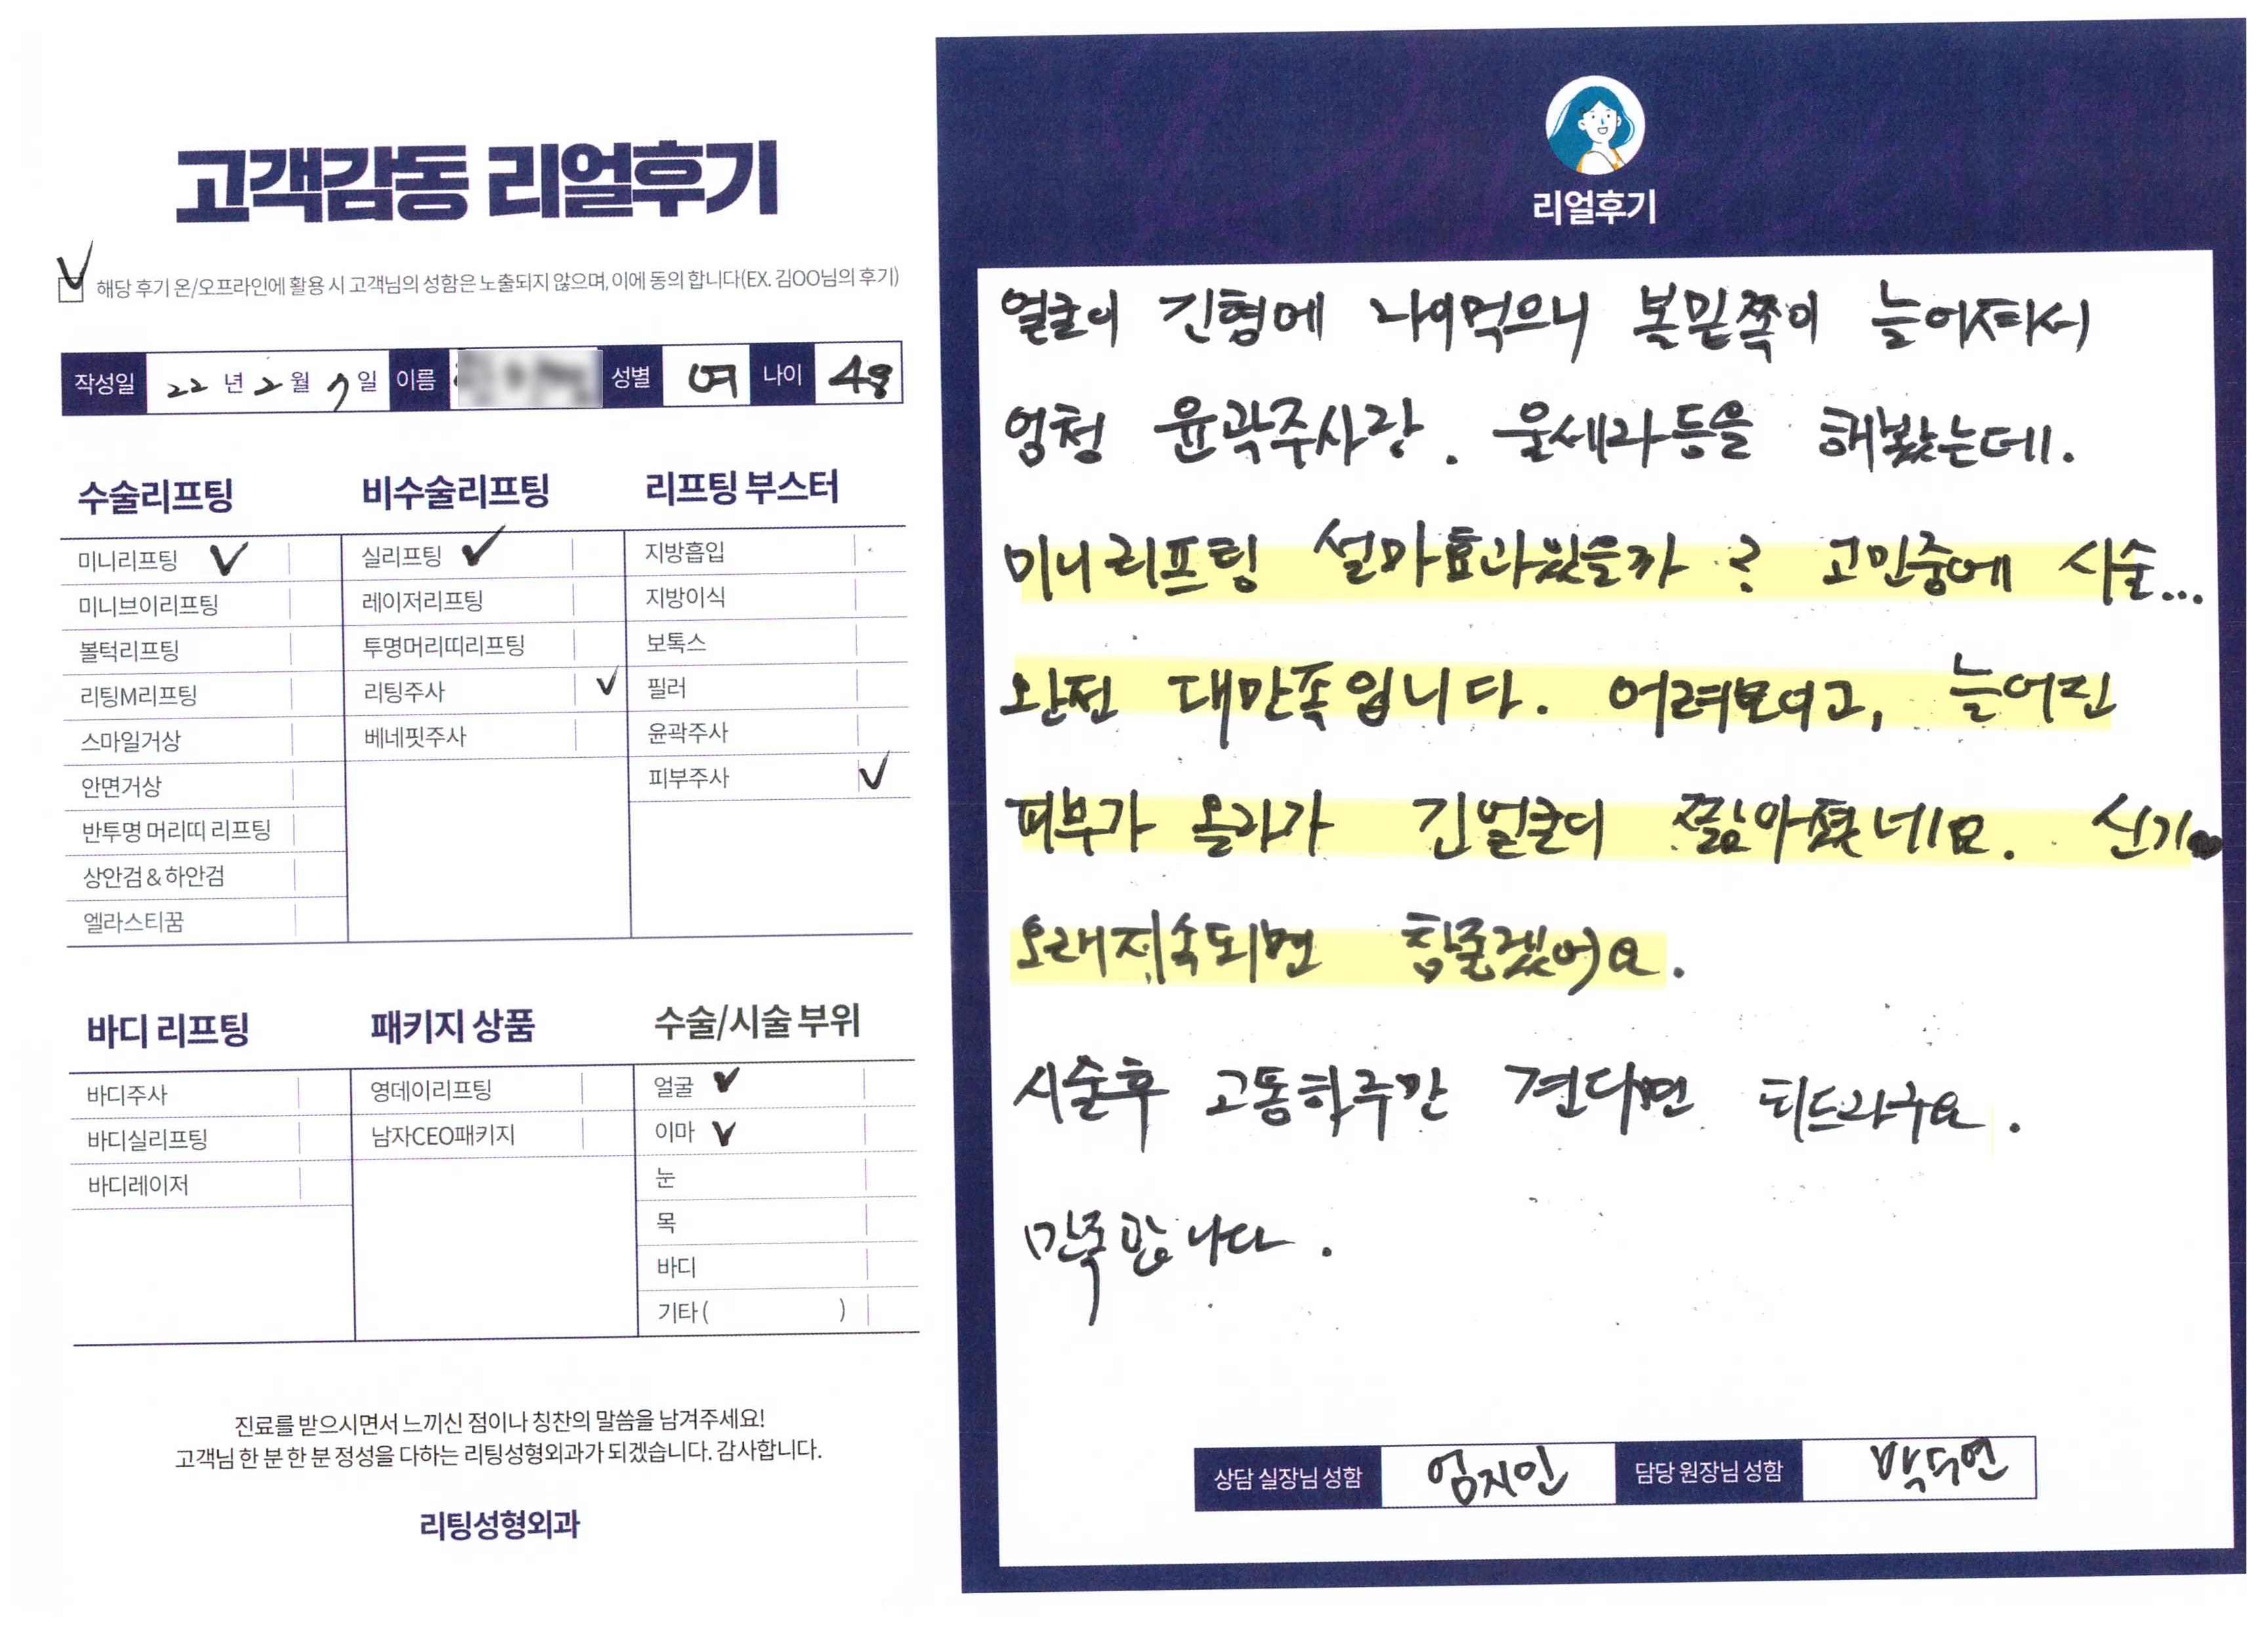 고객감동 리얼후기
해당 후기 온/오프라인에 활용 시 고객님의 성함은 노출되지 않으며, 이에 동의 합니다(EX. 김OO님의 후기)
작성일 22 년 2 월 7 일 이름 성별 여 나이 48
수술리프팅
미니리프팅
미니브이리프팅
볼턱리프팅
리팅M리프팅
스마일거상
안면거상
반투명 머리띠 리프팅
상안검 & 하안검
엘라스티꿈
비수술리프팅
실리프팅
레이저리프팅
투명머리띠리프팅
리팅주사
베네핏주사
리프팅 부스터
지방흡입
지방이식
보톡스
필러
윤곽주사
피부주사
바디 리프팅
바디주사
바디실리프팅
바디레이저
패키지 상품
영데이리프팅
남자CEO패키지
수술/시술 부위
얼굴
이마
눈
목
바디
기타 ( )
진료를 받으시면서 느끼신 점이나 칭찬의 말씀을 남겨주세요!
고객님 한 분 한 분 정성을 다하는 리팅성형외과가 되겠습니다. 감사합니다.
리팅성형외과
리얼후기
얼굴이 긴형에 나이먹으니 볼밑쪽이 늘어져서
엄청 윤곽주사랑. 울세라등을 해봤는데.
미니리프팅 설마효과있을까? 고민중에 시술...
완전 대만족입니다. 어려보이고, 늘어진
피부가 올라가 긴얼굴이 짧아졌네요. 신기
오래지속되면 참좋겠어요.
시술후 고통하루만 견디면 되드라구요.
만족합니다.
상담 실장님 성함 엄지인 담당 원장님 성함 박수연